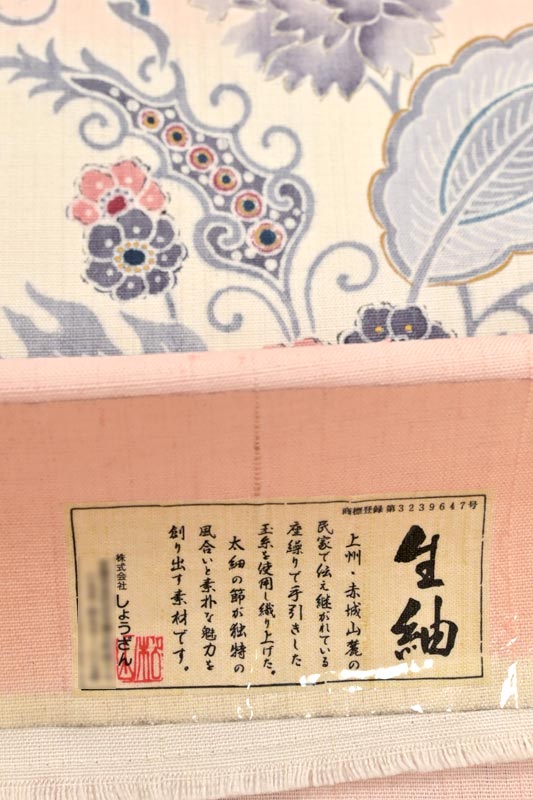 商標登録 第3239647号
生紬
上州・赤城山麓の
民家で伝え継がれている
座繰りで手引きした
玉糸を使用し織り上げた。
太細の節が独特の
風合いと素朴な魅力を
創り出す素材です。
株式会社 しょうざん